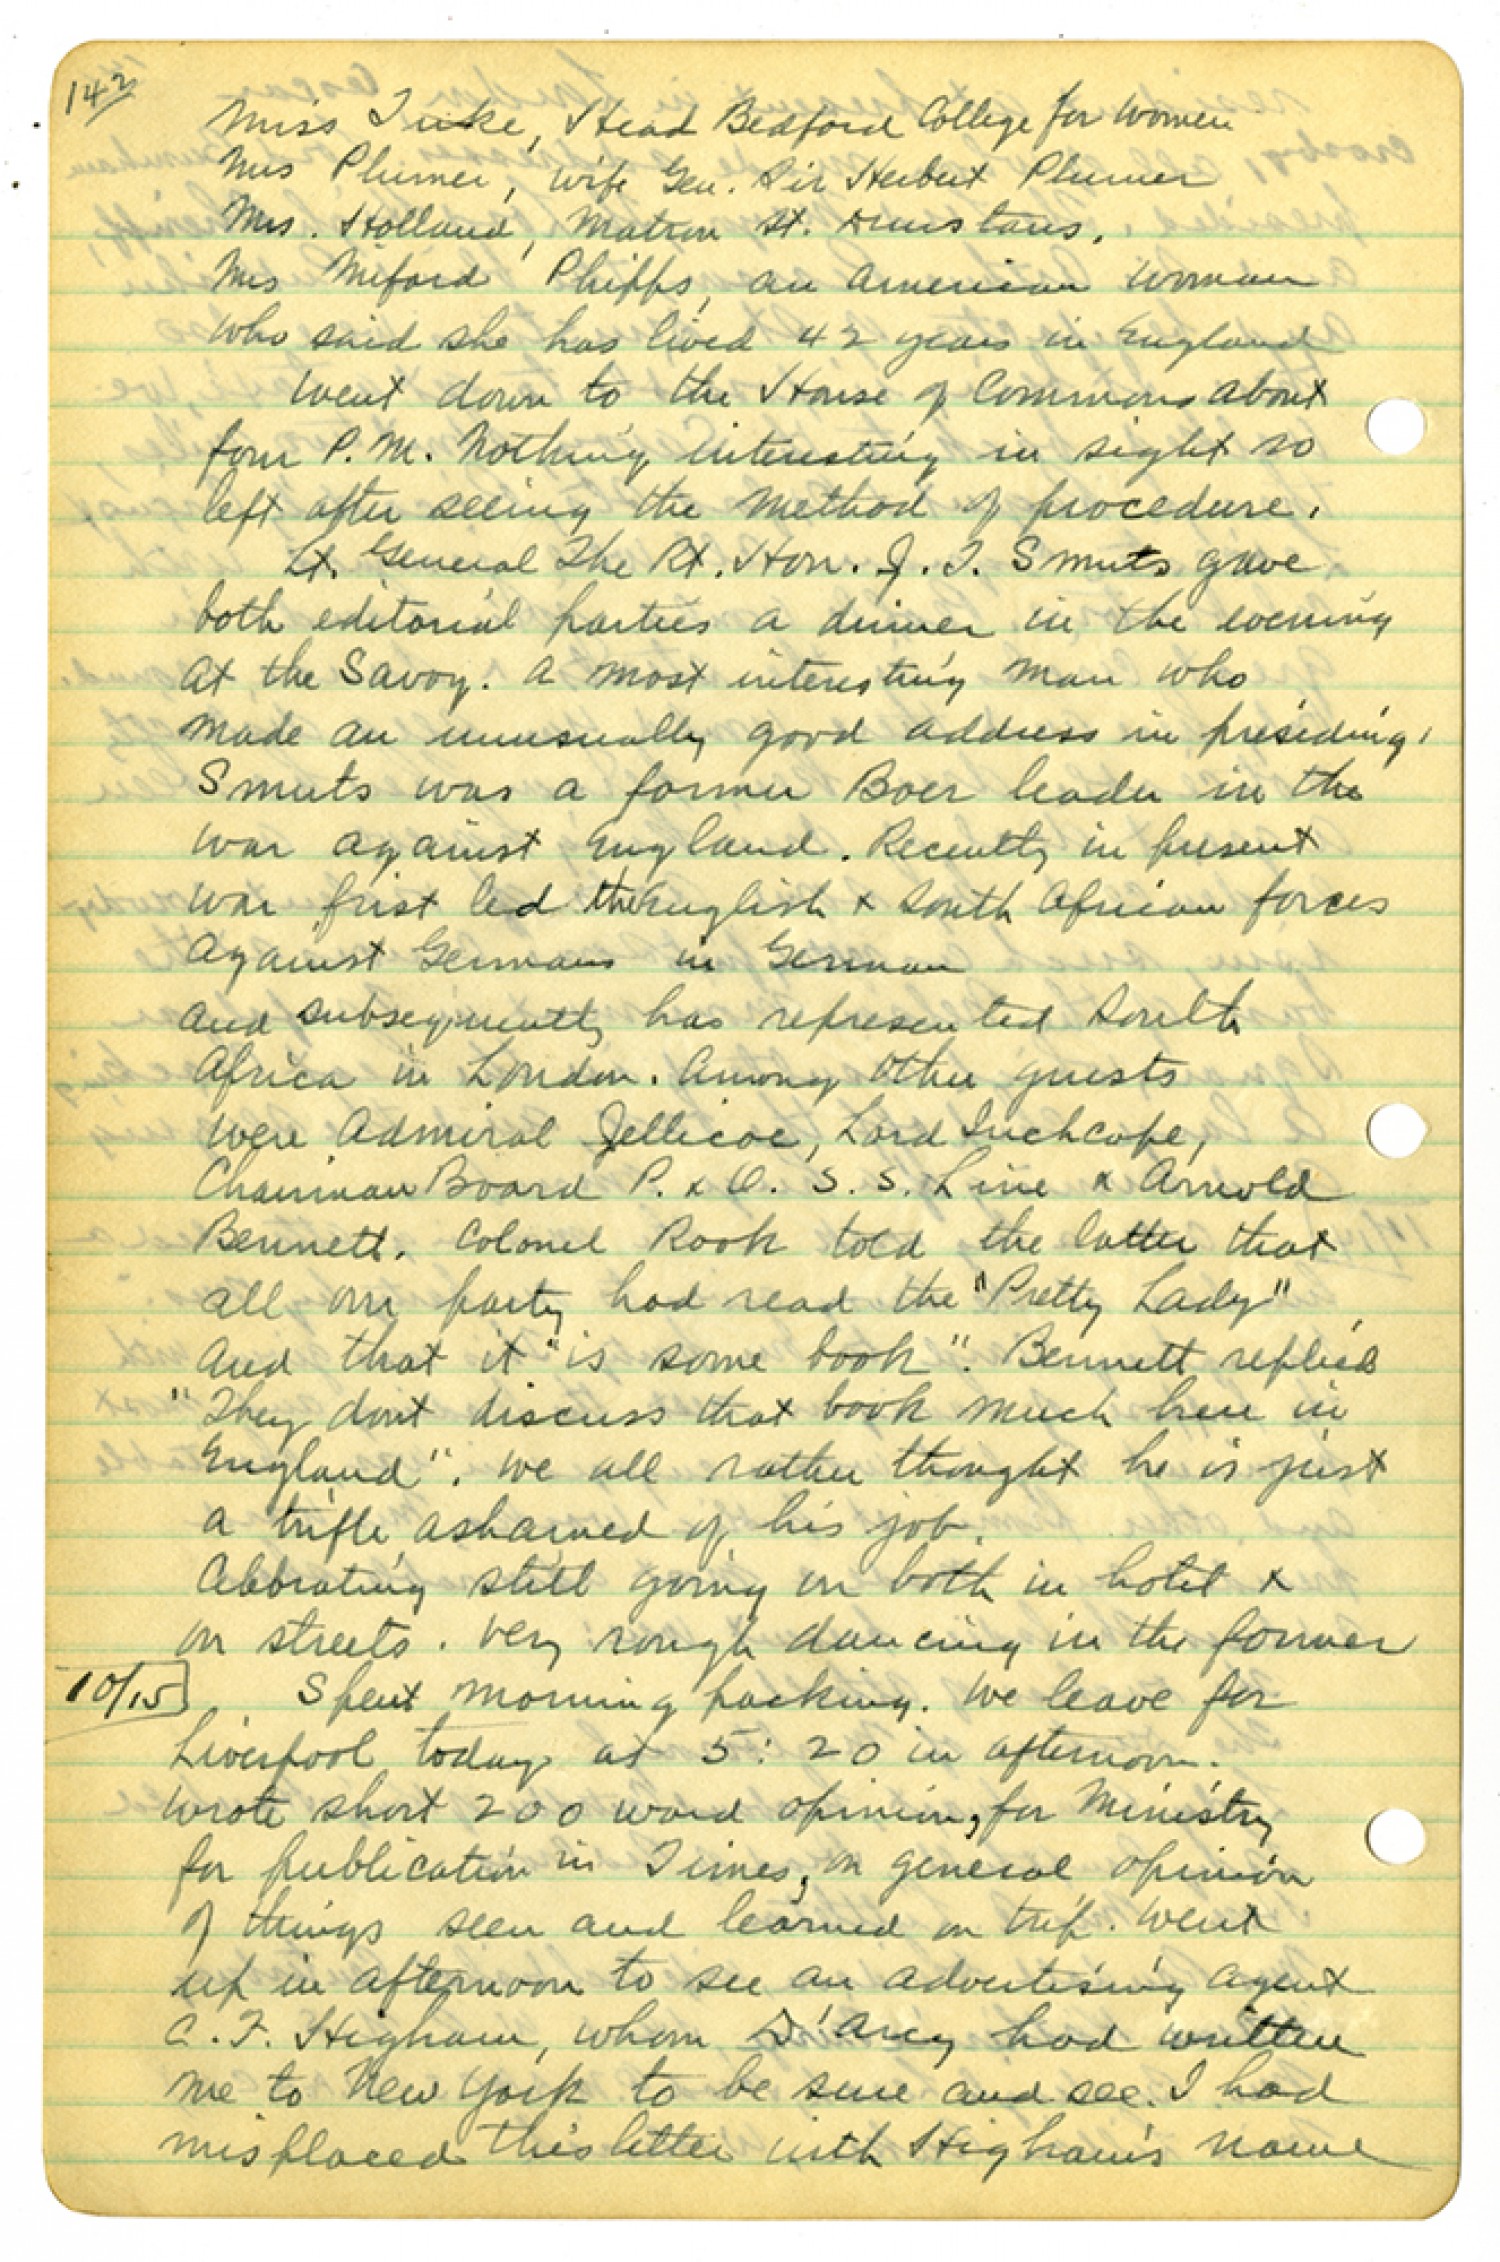 142
Miss Tuke, Head Bedford College for Women
Mrs Plumer, wife Gen. Sir Herbert Plumer
Mrs. Holland, Matron St. Dunstans.
Mrs Miford Phipps, an American woman
who said she has lived 42 years in England
Went down to the House of Commons about
four P.M. Nothing interesting in sight so
left after seeing the method of procedure.
Lt. General The Rt. Hon. J. T. Smuts gave
both editorial parties a dinner in the evening
at the Savoy. A most interesting man who
made an unusually good address in presiding.
Smuts was a former Boer leader in the
war against England. Recently in present
war first led the English & South African forces
against Germans in German
and subsequently has represented South
Africa in London. Among other guests
were Admiral Jellicoe, Lord Inchcape,
Chairman Board P. & O. S. S. Line & Arnold
Bennett. Colonel Rook told the latter that
all our party had read the "Pretty Lady"
and that it "is some book". Bennett replied
"They dont discuss that book much here in
England". We all rather thought he is just
a trifle ashamed of his job.
Celebrating still going on both in hotel &
on streets. Very rough dancing in the former
10/15 Spent morning packing. We leave for
Liverpool today at 5:20 in afternoon.
Wrote short 200 word opinion, for Ministry
for publication in Times, on general opinion
of things seen and learned on trip. Went
up in afternoon to see an advertising agent
C. F. Higham, whom D'Arcy had written
me to New York to be sure and see. I had
misplaced this letter with Higham's name